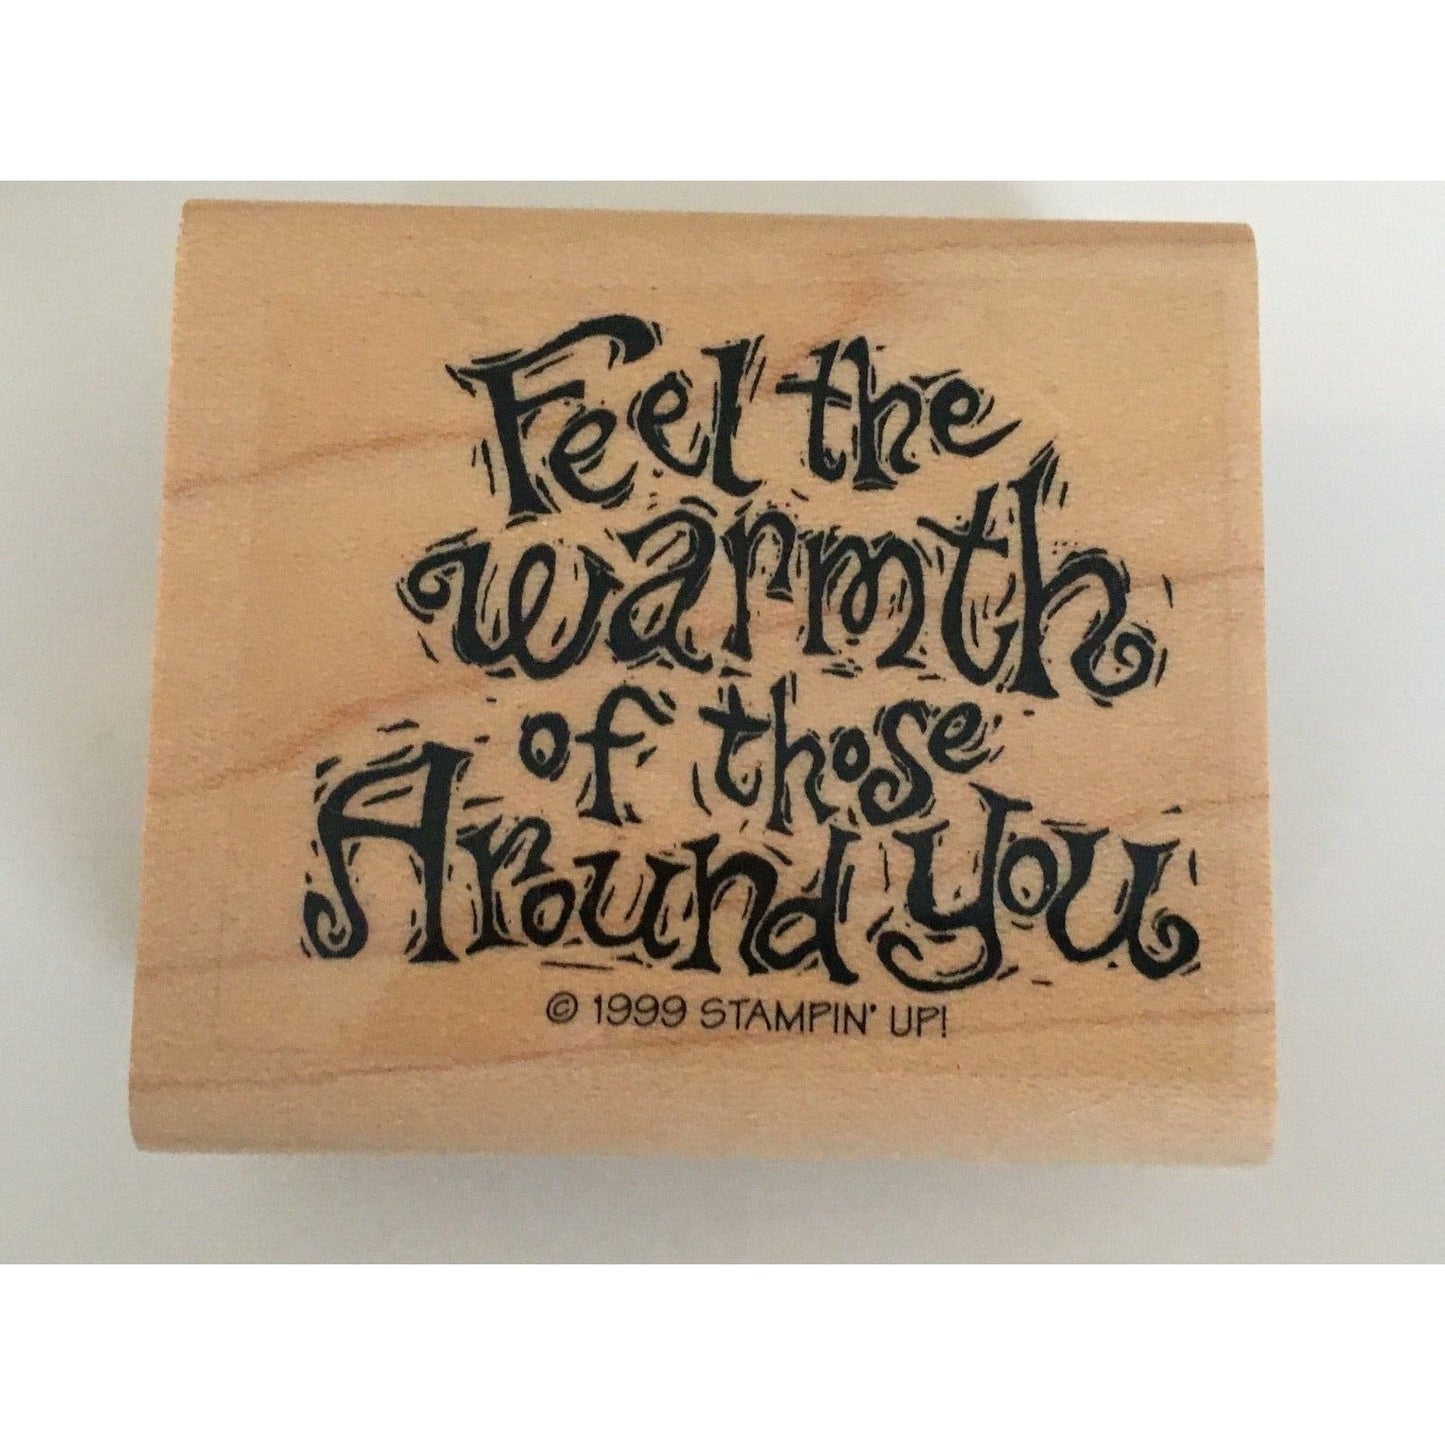 Feel the
warmth
of those
Around You
© 1999 STAMPIN' UP!